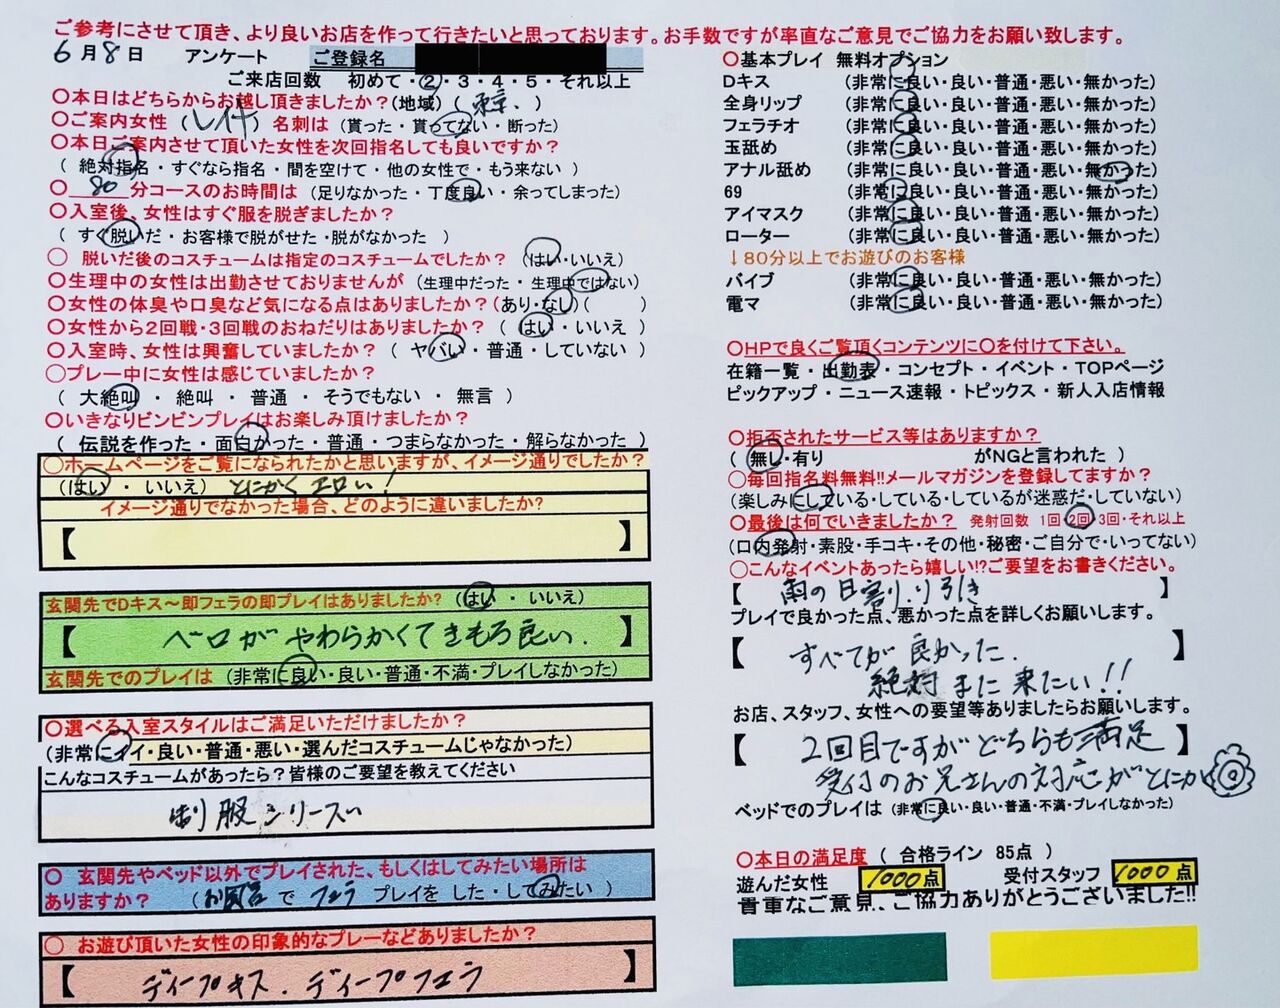 ご参考にさせて頂き、より良いお店を作って行きたいと思っております。お手数ですが率直なご意見でご協力をお願い致します。
6月8日 アンケート ご登録名
ご来店回数 初めて・②・3・4・5・それ以上
〇本日はどちらからお越し頂きましたか？(地域) ( 東京. )
〇ご案内女性 (レイナ) 名刺は (貰った・貰ってない・断った)
〇本日ご案内させて頂いた女性を次回指名しても良いですか？
( 絶対指名・すぐなら指名・間を空けて・他の女性で・もう来ない )
〇 80 分コースのお時間は (足りなかった・丁度良い・余ってしまった)
〇入室後、女性はすぐ服を脱ぎましたか？
( すぐ脱いだ・お客様で脱がせた・脱がなかった )
〇 脱いだ後のコスチュームは指定のコスチュームでしたか？ (はい・いいえ)
〇生理中の女性は出勤させておりませんが (生理中だった・生理中ではない)
〇女性の体臭や口臭など気になる点はありましたか？(あり・なし)( )
〇女性から2回戦・3回戦のおねだりはありましたか？ ( はい・いいえ )
〇入室時、女性は興奮していましたか？ ( ヤバい・普通・していない )
〇プレー中に女性は感じていましたか？
( 大絶叫・絶叫・普通・そうでもない・無言 )
〇いきなりビンビンプレイはお楽しみ頂けましたか？
( 伝説を作った・面白かった・普通・つまらなかった・解らなかった )
〇ホームページをご覧になられたかと思いますが、イメージ通りでしたか？
(はい・いいえ) とにかくエロい!
イメージ通りでなかった場合、どのように違いましたか?
【 】
玄関先でDキス～即フェラの即プレイはありましたか? (はい・いいえ)
【 ベロがやわらかくてきもち良い. 】
玄関先でのプレイは (非常に良い・良い・普通・不満・プレイしなかった)
〇選べる入室スタイルはご満足いただけましたか？
(非常にイイ・良い・普通・悪い・選んだコスチュームじゃなかった)
こんなコスチュームがあったら？皆様のご要望を教えてください
制服シリーズ
〇 玄関先やベッド以外でプレイされた、もしくはしてみたい場所は
ありますか？ (お風呂で フェラ プレイを した・してみたい )
〇 お遊び頂いた女性の印象的なプレーなどありましたか？
【 ディープキス. ディープフェラ 】
〇基本プレイ 無料オプション
Dキス (非常に良い・良い・普通・悪い・無かった)
全身リップ (非常に良い・良い・普通・悪い・無かった)
フェラチオ (非常に良い・良い・普通・悪い・無かった)
玉舐め (非常に良い・良い・普通・悪い・無かった)
アナル舐め (非常に良い・良い・普通・悪い・無かった)
69 (非常に良い・良い・普通・悪い・無かった)
アイマスク (非常に良い・良い・普通・悪い・無かった)
ローター (非常に良い・良い・普通・悪い・無かった)
↓80分以上でお遊びのお客様
バイブ (非常に良い・良い・普通・悪い・無かった)
電マ (非常に良い・良い・普通・悪い・無かった)
〇HPで良くご覧頂くコンテンツに〇を付けて下さい。
在籍一覧・出勤表・コンセプト・イベント・TOPページ
ピックアップ・ニュース速報・トピックス・新人入店情報
〇拒否されたサービス等はありますか？
( 無し・有り がNGと言われた )
〇毎回指名料無料!!メールマガジンを登録してますか？
(楽しみにしている・している・しているが迷惑だ・していない)
〇最後は何でいきましたか？ 発射回数 1回・2回・3回・それ以上
(口内発射・素股・手コキ・その他・秘密・ご自分で・いってない)
〇こんなイベントあったら嬉しい!?ご要望をお書きください。
【 雨の日割り引き 】
プレイで良かった点、悪かった点を詳しくお願いします。
【 すべてが良かった. 】
絶対また来たい!!
お店、スタッフ、女性への要望等ありましたらお願いします。
【 2回目ですがどちらも満足 】
受付のお兄さんの対応がとにかく◎
ベッドでのプレイは (非常に良い・良い・普通・不満・プレイしなかった)
〇本日の満足度 ( 合格ライン 85点 )
遊んだ女性 1000点 受付スタッフ 1000点
貴重なご意見、ご協力ありがとうございました!!